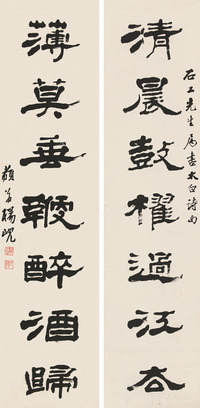 清晨鼓櫂過江去
石工先生屬書太白詩句
薄莫垂鞭醉酒歸
藐翁楊峴